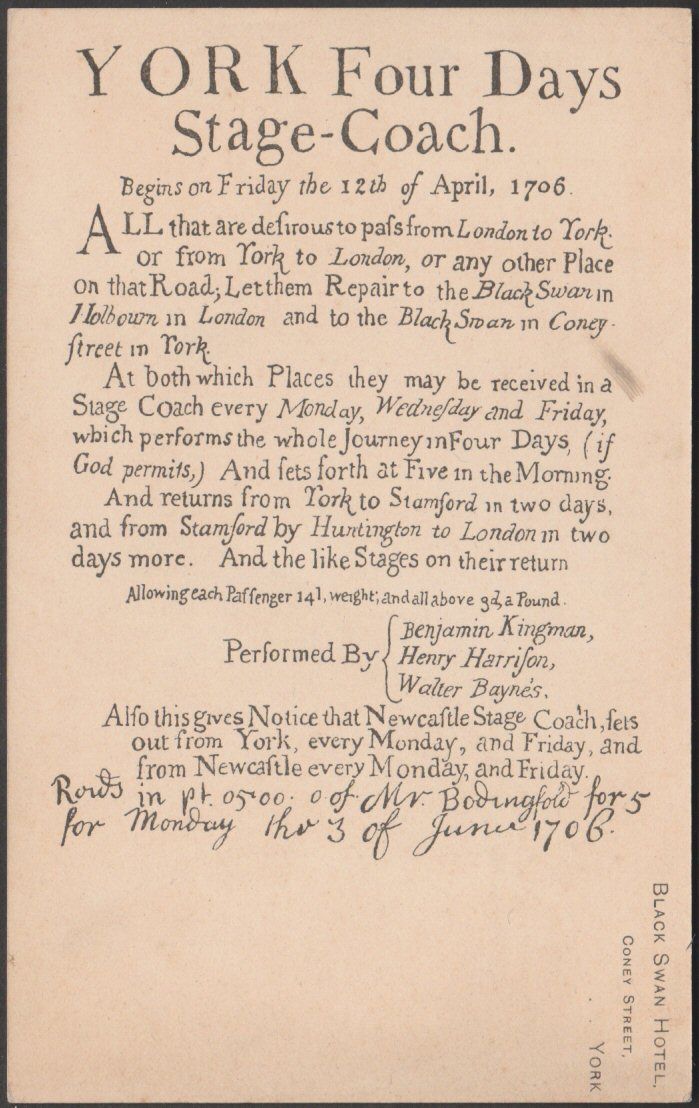 YORK Four Days
Stage-Coach.
Begins on Friday the 12th of April, 1706.
ALL that are deſirous to paſs from London to York.
or from York to London, or any other Place
on that Road; Let them Repair to the Black Swan in
Holbourn in London and to the Black Swan in Coney-
ſtreet in York.
At both which Places they may be received in a
Stage Coach every Monday, Wedneſday and Friday,
which performs the whole Journey in Four Days, (if
God permits,) And ſets forth at Five in the Morning.
And returns from York to Stamford in two days,
and from Stamford by Huntington to London in two
days more. And the like Stages on their return
Allowing each Paſſenger 14l, weight; and all above 3d, a Pound.
Performed By
Benjamin Kingman,
Henry Harriſon,
Walter Bayne's.
Alſo this gives Notice that Newcaſtle Stage Coach, ſets
out from York, every Monday, and Friday, and
from Newcaſtle every Monday, and Friday.
in pt. 05.00. 0 of. Mr. Bodingfold for 5
for Monday the 3 of June 1706.
BLACK SWAN HOTEL,
CONEY STREET,
. . YORK